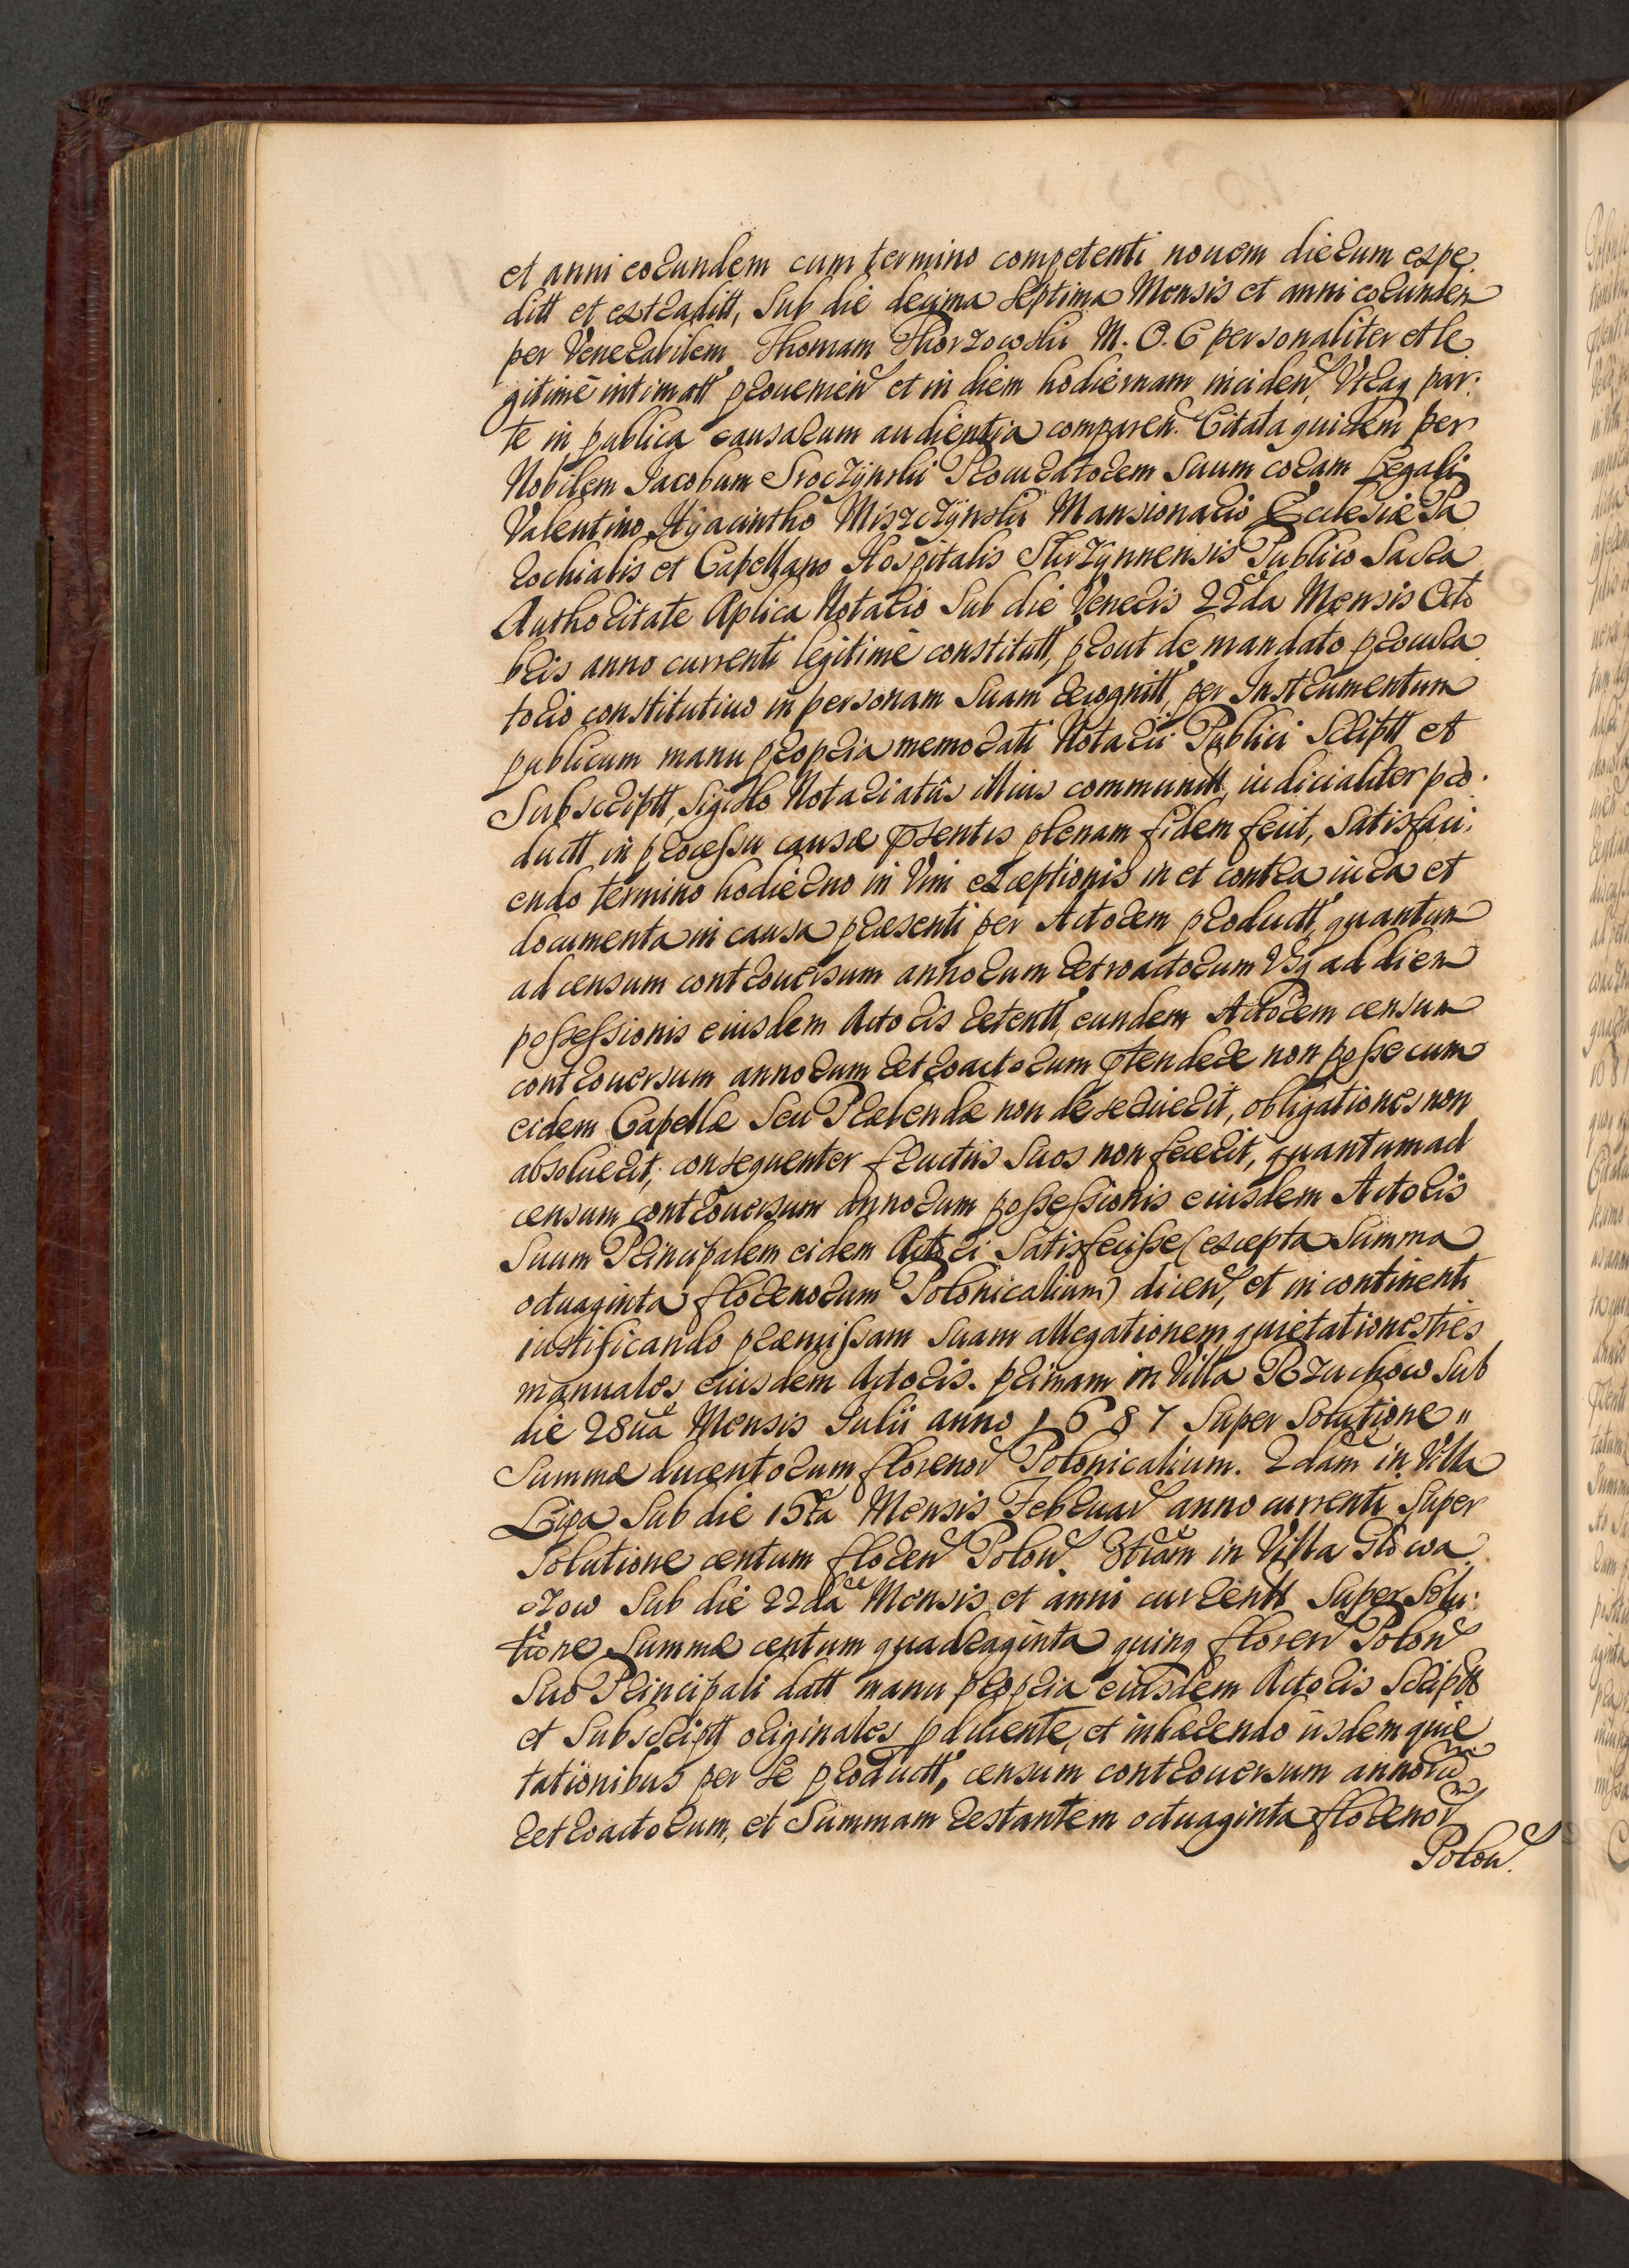 et anni eorundem cum termino competenti nouem dierum expe
ditt et extraditt, Sub die decima Septima Mensis et anni eorundem
per Venerabilem Thomam Thorzowski M. O. C personaliter et le
gitimè intimatt prouenien et in diem hodiernam inciden, Vtraq par:
te in publica causarum audientia comparen. Citata quidem per
Nobilem Jacobum Sroczÿnski Procuratorem Suum coram Legali
Valentino Hÿacintho Miszczÿnski Mansionario Ecclesiæ Pa
rochialis et Capellano Hospitalis Skrzÿnnensis Publico Sacra
Authoritate Aplica Notario Sub die Veneris 22da Mensis Octo
bris anno currenti legitimè constitutt, prout de mandato procura
torio constitutiuo in personam Suam recognitt, per Instrumentum
publicum manu propria memorati Notarii Publici Scriptt et
Subscriptt, Sigillo Notariatûs illius communitt, iudicialiter pro.
ductt in processu causæ pñtentis plenam fidem fecit, Satisfaci.
endo termino hodierno in Vim exceptionis in et contra iura et
documenta in causa præsenti per Actorem productt, quantum
ad censum controuersum annorum retroactorum Vsq ad diem
possessionis eiusdem Actoris retentt, eundem Actorem censum
controuersum annorum retroactorum ptendere non posse cum
eidem Capellæ Seu Præbendæ non deseruierit, obligationes non
absoluerit, consequenter fructûs Suos non fecerit, quantum ad
censum controuersum annorum possessionis eiusdem Actoris
Suum Principalem eidem Actori Satisfecisse (excepta Summa
octuaginta florenorum Polonicalium) dicen, et in continenti
iustificando præmissam Suam allegationem quietationes tres
manuales eiusdem Actoris. primam in Villa Rzuchow Sub
die 28ua Mensis Julii anno 1687 Super Solutione
Summæ ducentorum florenor Polonicalium. 2dam in Villa
Lipa Sub die 15ta Mensis Februar anno currenti Super
Solutione centum floren Polon. 3tiam in Villa Głowa
czow Sub die 22da Mensis et anni currentt Super Solu:
tione Summæ centum quadraginta quinq floren Polon
Suo Principali datt manu propria eiusdem Actoris Scriptt
et Subscriptt originales pducente, et inhærendo iisdem quie
tationibus per Se productt, censum controuersum annorum
retroactorum, et Summam restantem octuaginta florenor
Polon.